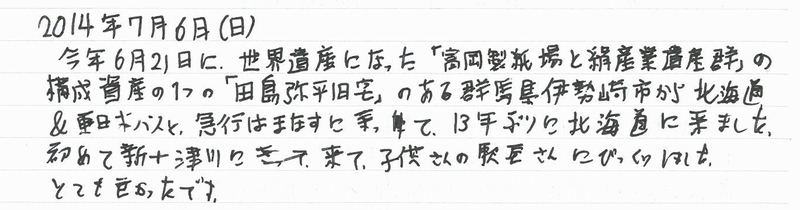 2014年7月6日(日)
今年6月21日に、世界遺産になった「富岡製糸場と絹産業遺産群」の
構成資産の1つの「田島弥平旧宅」のある群馬県伊勢崎市から北海道
&東日本パスと、急行はまなすに乗って、13年ぶりに北海道に来ました。
初めて新十津川に来て、子供さんの駅長さんにびっくりしました。
とても良かったです。